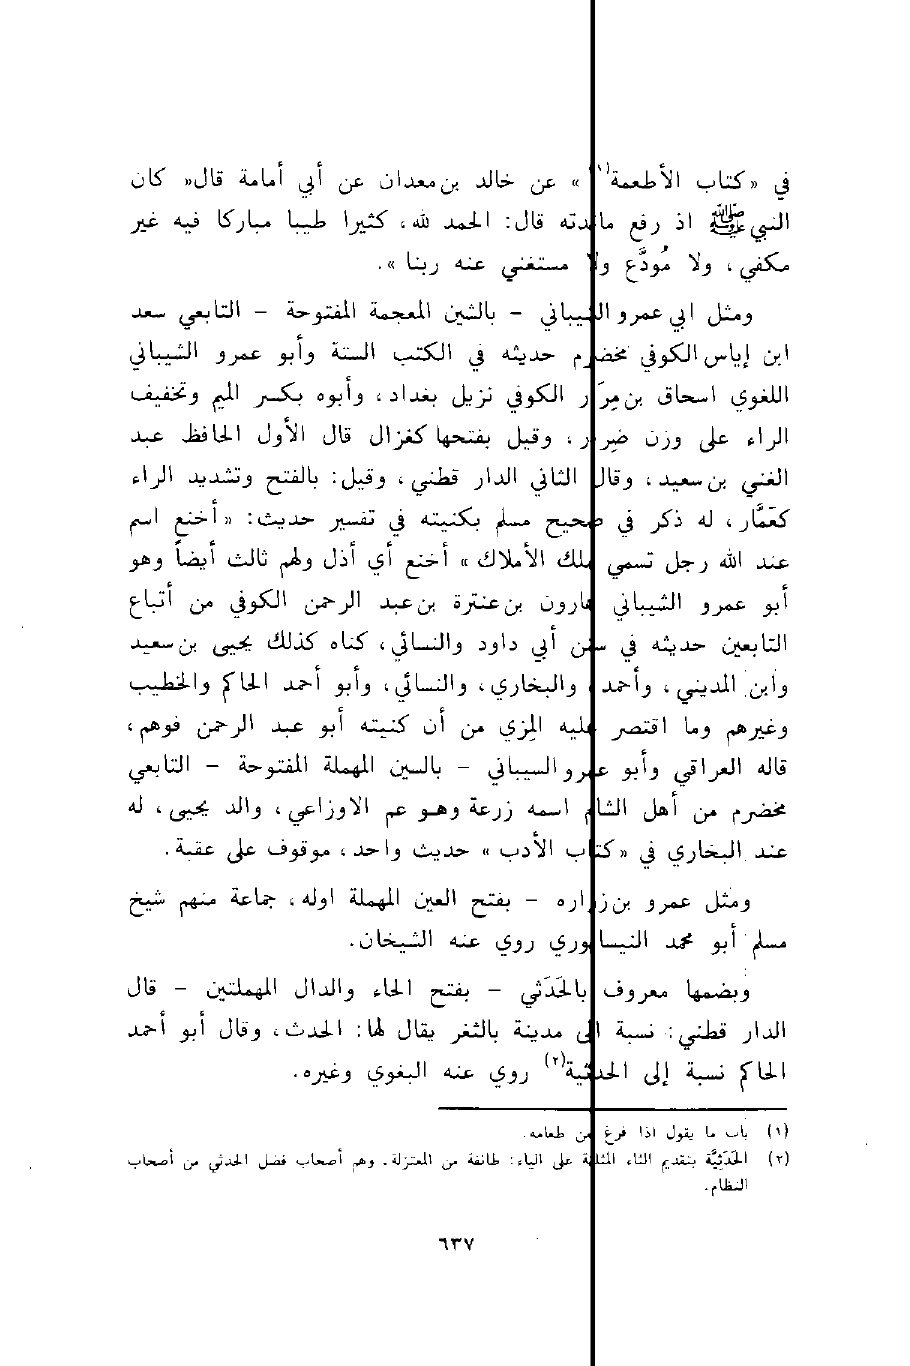 في «كتاب الأطعمة(١)» عن خالد بن معدان عن أبي أمامة قال» كان
النبي ﷺ اذ رفع مائدته قال: الحمد لله، كثيرا طيبا مباركا فيه غير
مكفي، ولا مُودَّع ولا مستغني عنه ربنا».
ومثل ابي عمرو الشيباني - بالشين المعجمة المفتوحة - التابعي سعد
ابن إياس الكوفي مخضرم حديثه في الكتب الستة وأبو عمرو الشيباني
اللغوي اسحاق بن مِرَار الكوفي نزيل بغداد، وأبوه بكسر الميم وتخفيف
الراء على وزن ضِرار، وقيل بفتحها كغزال قال الأول الحافظ عبد
الغني بن سعيد، وقال الثاني الدار قطني، وقيل: بالفتح وتشديد الراء
كعَمَّار، له ذكر في صحيح مسلم بكنيته في تفسير حديث: «أخنع اسم
عند الله رجل تسمي ملك الأملاك» أخنع أي أذل ولهم ثالث أيضاً وهو
أبو عمرو الشيباني هارون بن عنترة بن عبد الرحمن الكوفي من أتباع
التابعين حديثه في سنن أبي داود والنسائي، كناه كذلك يحيى بن سعيد
وابن المديني، وأحمد، والبخاري، والنسائي، وأبو أحمد الحاكم والخطيب
وغيرهم وما اقتصر عليه المِزي من أن كنيته أبو عبد الرحمن فوهم،
قاله العراقي وأبو عمرو السيباني - بالسين المهملة المفتوحة - التابعي
مخضرم من أهل الشام اسمه زرعة وهو عم الاوزاعي، والد يحيى، له
عند البخاري في «كتاب الأدب» حديث واحد، موقوف على عقبة.
ومثل عمرو بن زراره - بفتح العين المهملة اوله، جماعة منهم شيخ
مسلم أبو محمد النيسابوري روي عنه الشيخان.
وبضمها معروف بالحَدَثي - بفتح الحاء والدال المهملتين - قال
الدار قطني: نسبة الى مدينة بالثغر يقال لها: الحدث، وقال أبو أحمد
الحاكم نسبة إلى الحدثية(٢) روي عنه البغوي وغيره.
(١) باب ما يقول اذا فرغ من طعامه.
(٢) الحَدَثِيَّة بتقديم الثاء المثلثة على الياء: طائفة من المعتزلة. وهم أصحاب فضل الحدثي من أصحاب
النظام.
٦٣٧